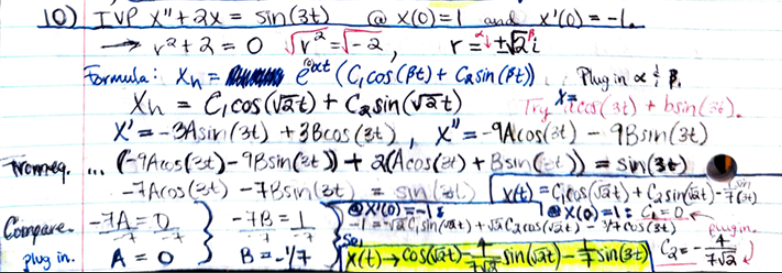 10) IVP x"+2x = sin(3t) @ x(0)=1 and x'(0) = -1.
→ r²+2 = 0 √r²=√-2, r = ±√2i
Formula: Xh = e^αt (C₁cos(βt) + C₂sin(βt)) Plug in α & β.
Xh = C₁cos(√2t) + C₂sin(√2t) Try X= acos(3t) + bsin(3t).
X' = -3Asin(3t) + 3Bcos(3t), X" = -9Acos(3t) - 9Bsin(3t)
From eq. ... (-9Acos(3t) - 9Bsin(3t)) + 2(Acos(3t) + Bsin(3t)) = sin(3t)
-7Acos(3t) - 7Bsin(3t) = sin(3t) x(t) = C₁cos(√2t) + C₂sin(√2t) - 1/7 sin(3t)
Compare. -7A = 0 } -7B = 1 } @X'(0)=-1: @X(0)=1: C₁=0 ←
-7 -7 -7 -7 -1 = -√2C₁sin(√2t) + √2C₂cos(√2t) - 3/7cos(3t) plug in.
plug in. A = 0 B = -1/7 So, X(t) → cos(√2t) - 4/7√2 sin(√2t) - 1/7 sin(3t) C₂ = -4/7√2